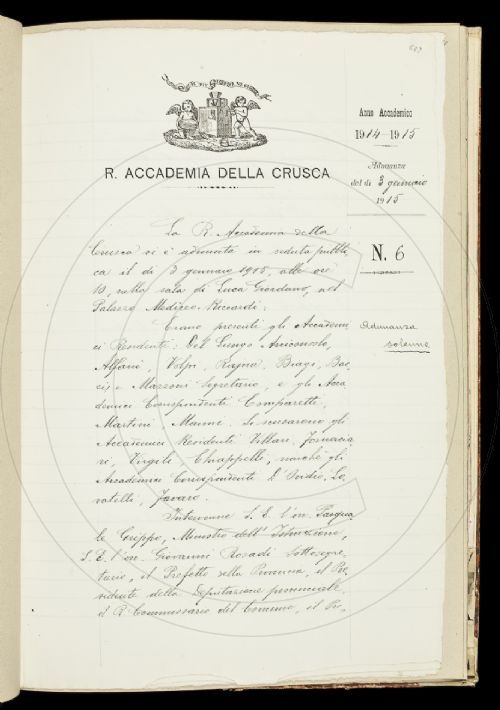 R. ACCADEMIA DELLA CRUSCA
Anno Accademico
1914-1915
Adunanza
del dì 3 gennaio
1915
N. 6
Adunanza
solenne
La R. Accademia della
Crusca si è adunata in seduta pubbli
ca il dì 3 gennaio 1915, alle ore
nella sala di Luca Giordano, nel
Palazzo Mediceo-Riccardi.
Erano presenti gli Accademi
ci Residenti: Del Lungo Arciconsolo,
Alfani, Volpi, Rajna, Biagi, Bac
ci, e Mazzoni Segretario, e gli Acca
demici Corrispondenti Comparetti,
Martini. Si scusarono gli
Accademici Residenti Villari, Fornacia
ri, Virgili, Chiappelli, nonché gli
Accademici Corrispondenti D'Ovidio, Lo
vatelli, Favaro.
Intervenne S. E. l'on. Pasqua
le Grippo, Ministro dell'Istruzione,
S. E. l'on. Giovanni Rosadi Sottosegre
tario, il Prefetto della Provincia, il Pre
sidente della Deputazione provinciale,
il R. Commissario del Comune, il Pro,